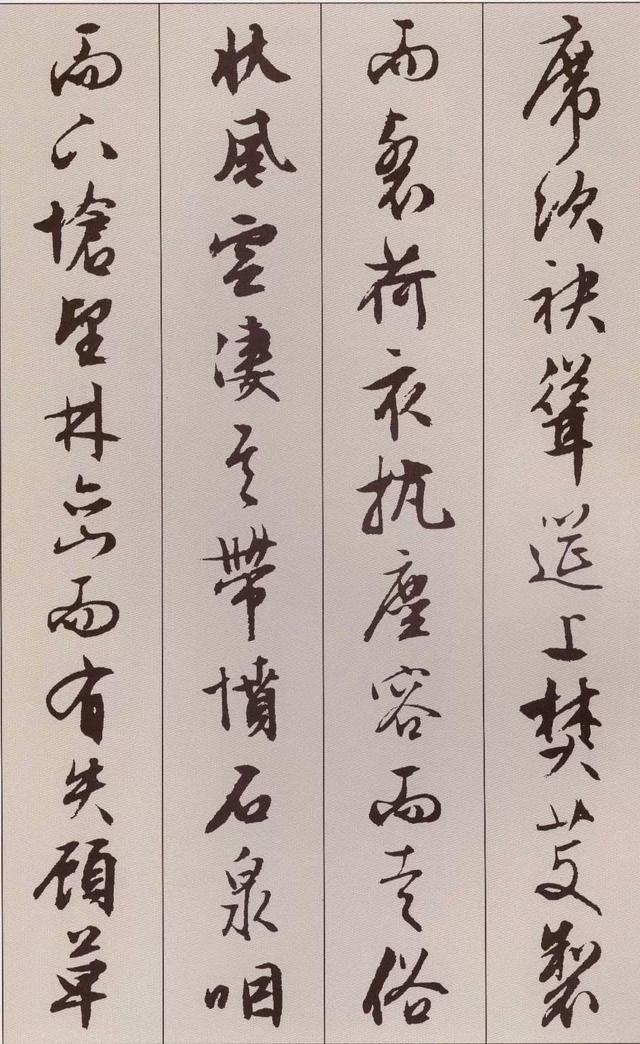 席次袂聳筵上焚芰製
而裂荷衣抗塵容而走俗
状風雲淒其帶憤石泉咽
而下愴望林巒而有失顧草